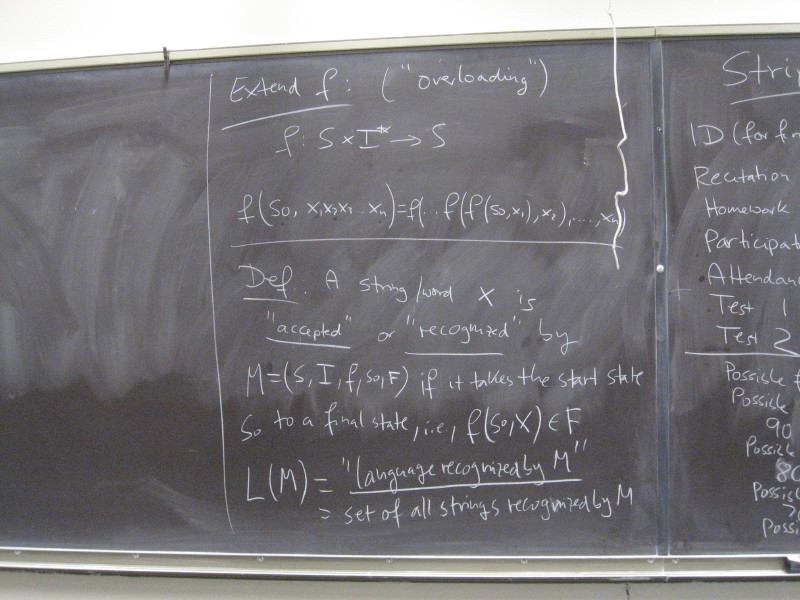 Extend f: ("overloading")
f: S × I* → S
f(s0, x1x2x3...xn) = f(... f(f(s0, x1), x2), ..., xn)
Def. A string/word X is
"accepted" or "recognized" by
M = (S, I, f, s0, F) if it takes the start state
s0 to a final state, i.e., f(s0, X) ∈ F
L(M) = "language recognized by M"
= set of all strings recognized by M
ID (for
Recitation
Homework
Test 1
Test 2
Possible
Possible
90
Possible
80